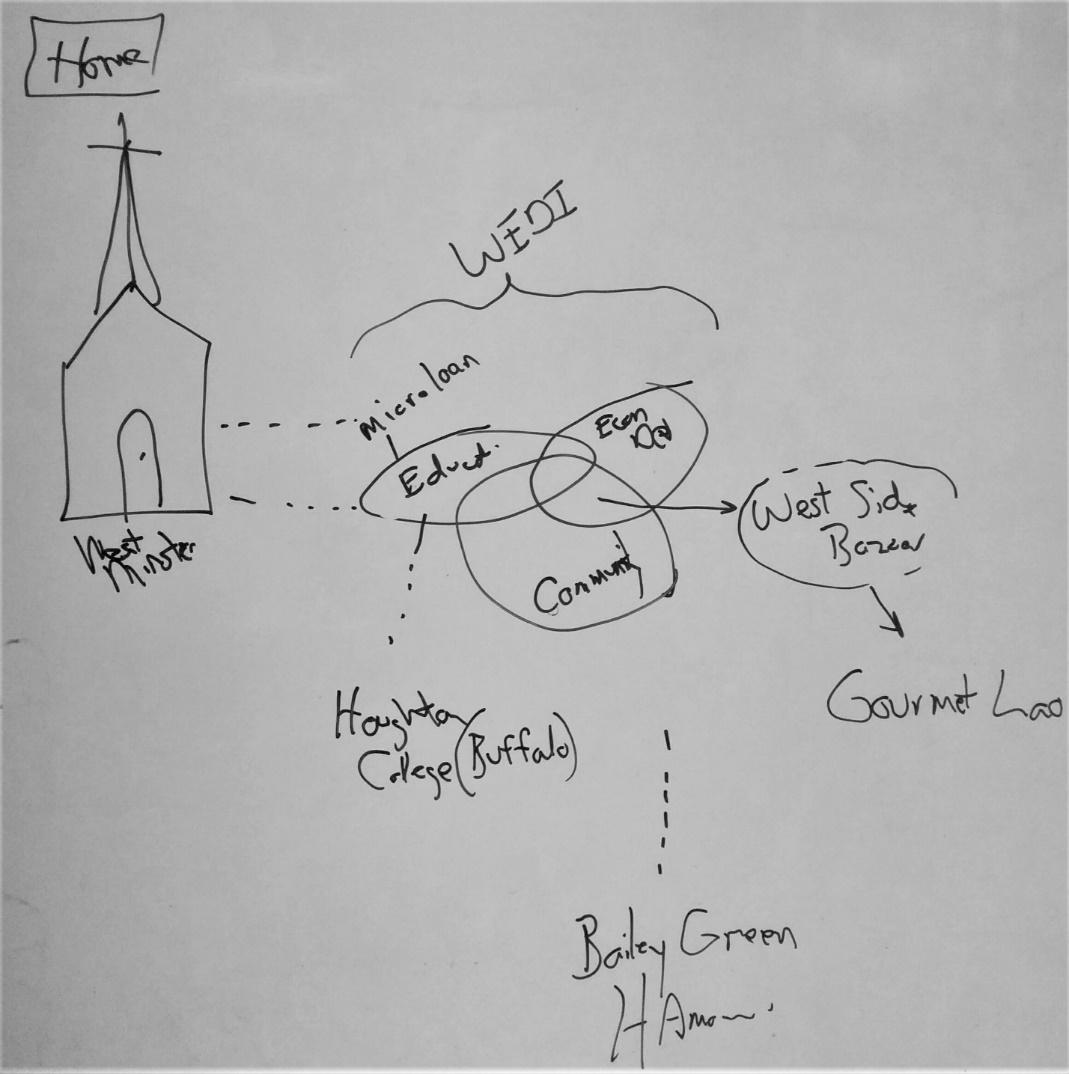 Home
WEDI
Microloan
Econ
Dev
Educat.
West Side
Bazaar
West
Minster
Community
Gourmet Lao
Houghton
College (Buffalo)
Bailey Green